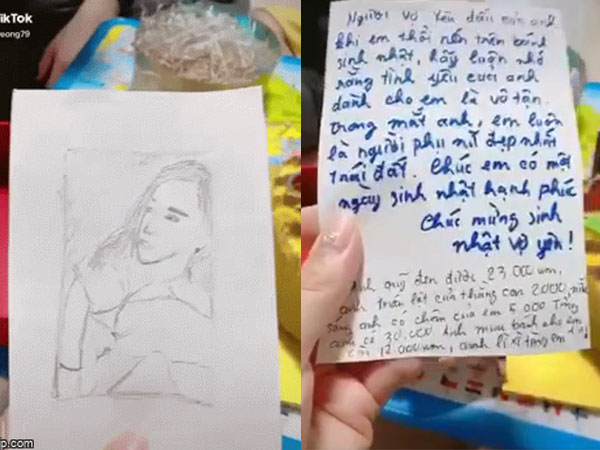 TikTok
eong79
Người vợ yêu dấu của anh
khi em thổi nến trên bánh
sinh nhật, hãy luôn nhớ
rằng tình yêu của anh
dành cho em là vô tận.
trong mắt anh, em luôn
là người phụ nữ đẹp nhất
trái đất. Chúc em có một
ngày sinh nhật hạnh phúc
Chúc mừng sinh
nhật vợ yêu!
Anh quỹ đen được 23.000 won,
anh trấn lột của thằng con 2000,
sáng anh có chôm của em 5 000 Tổng
có 30.000 Anh mua bánh cho em
12.000 won, anh lì xì tặng em
p.com